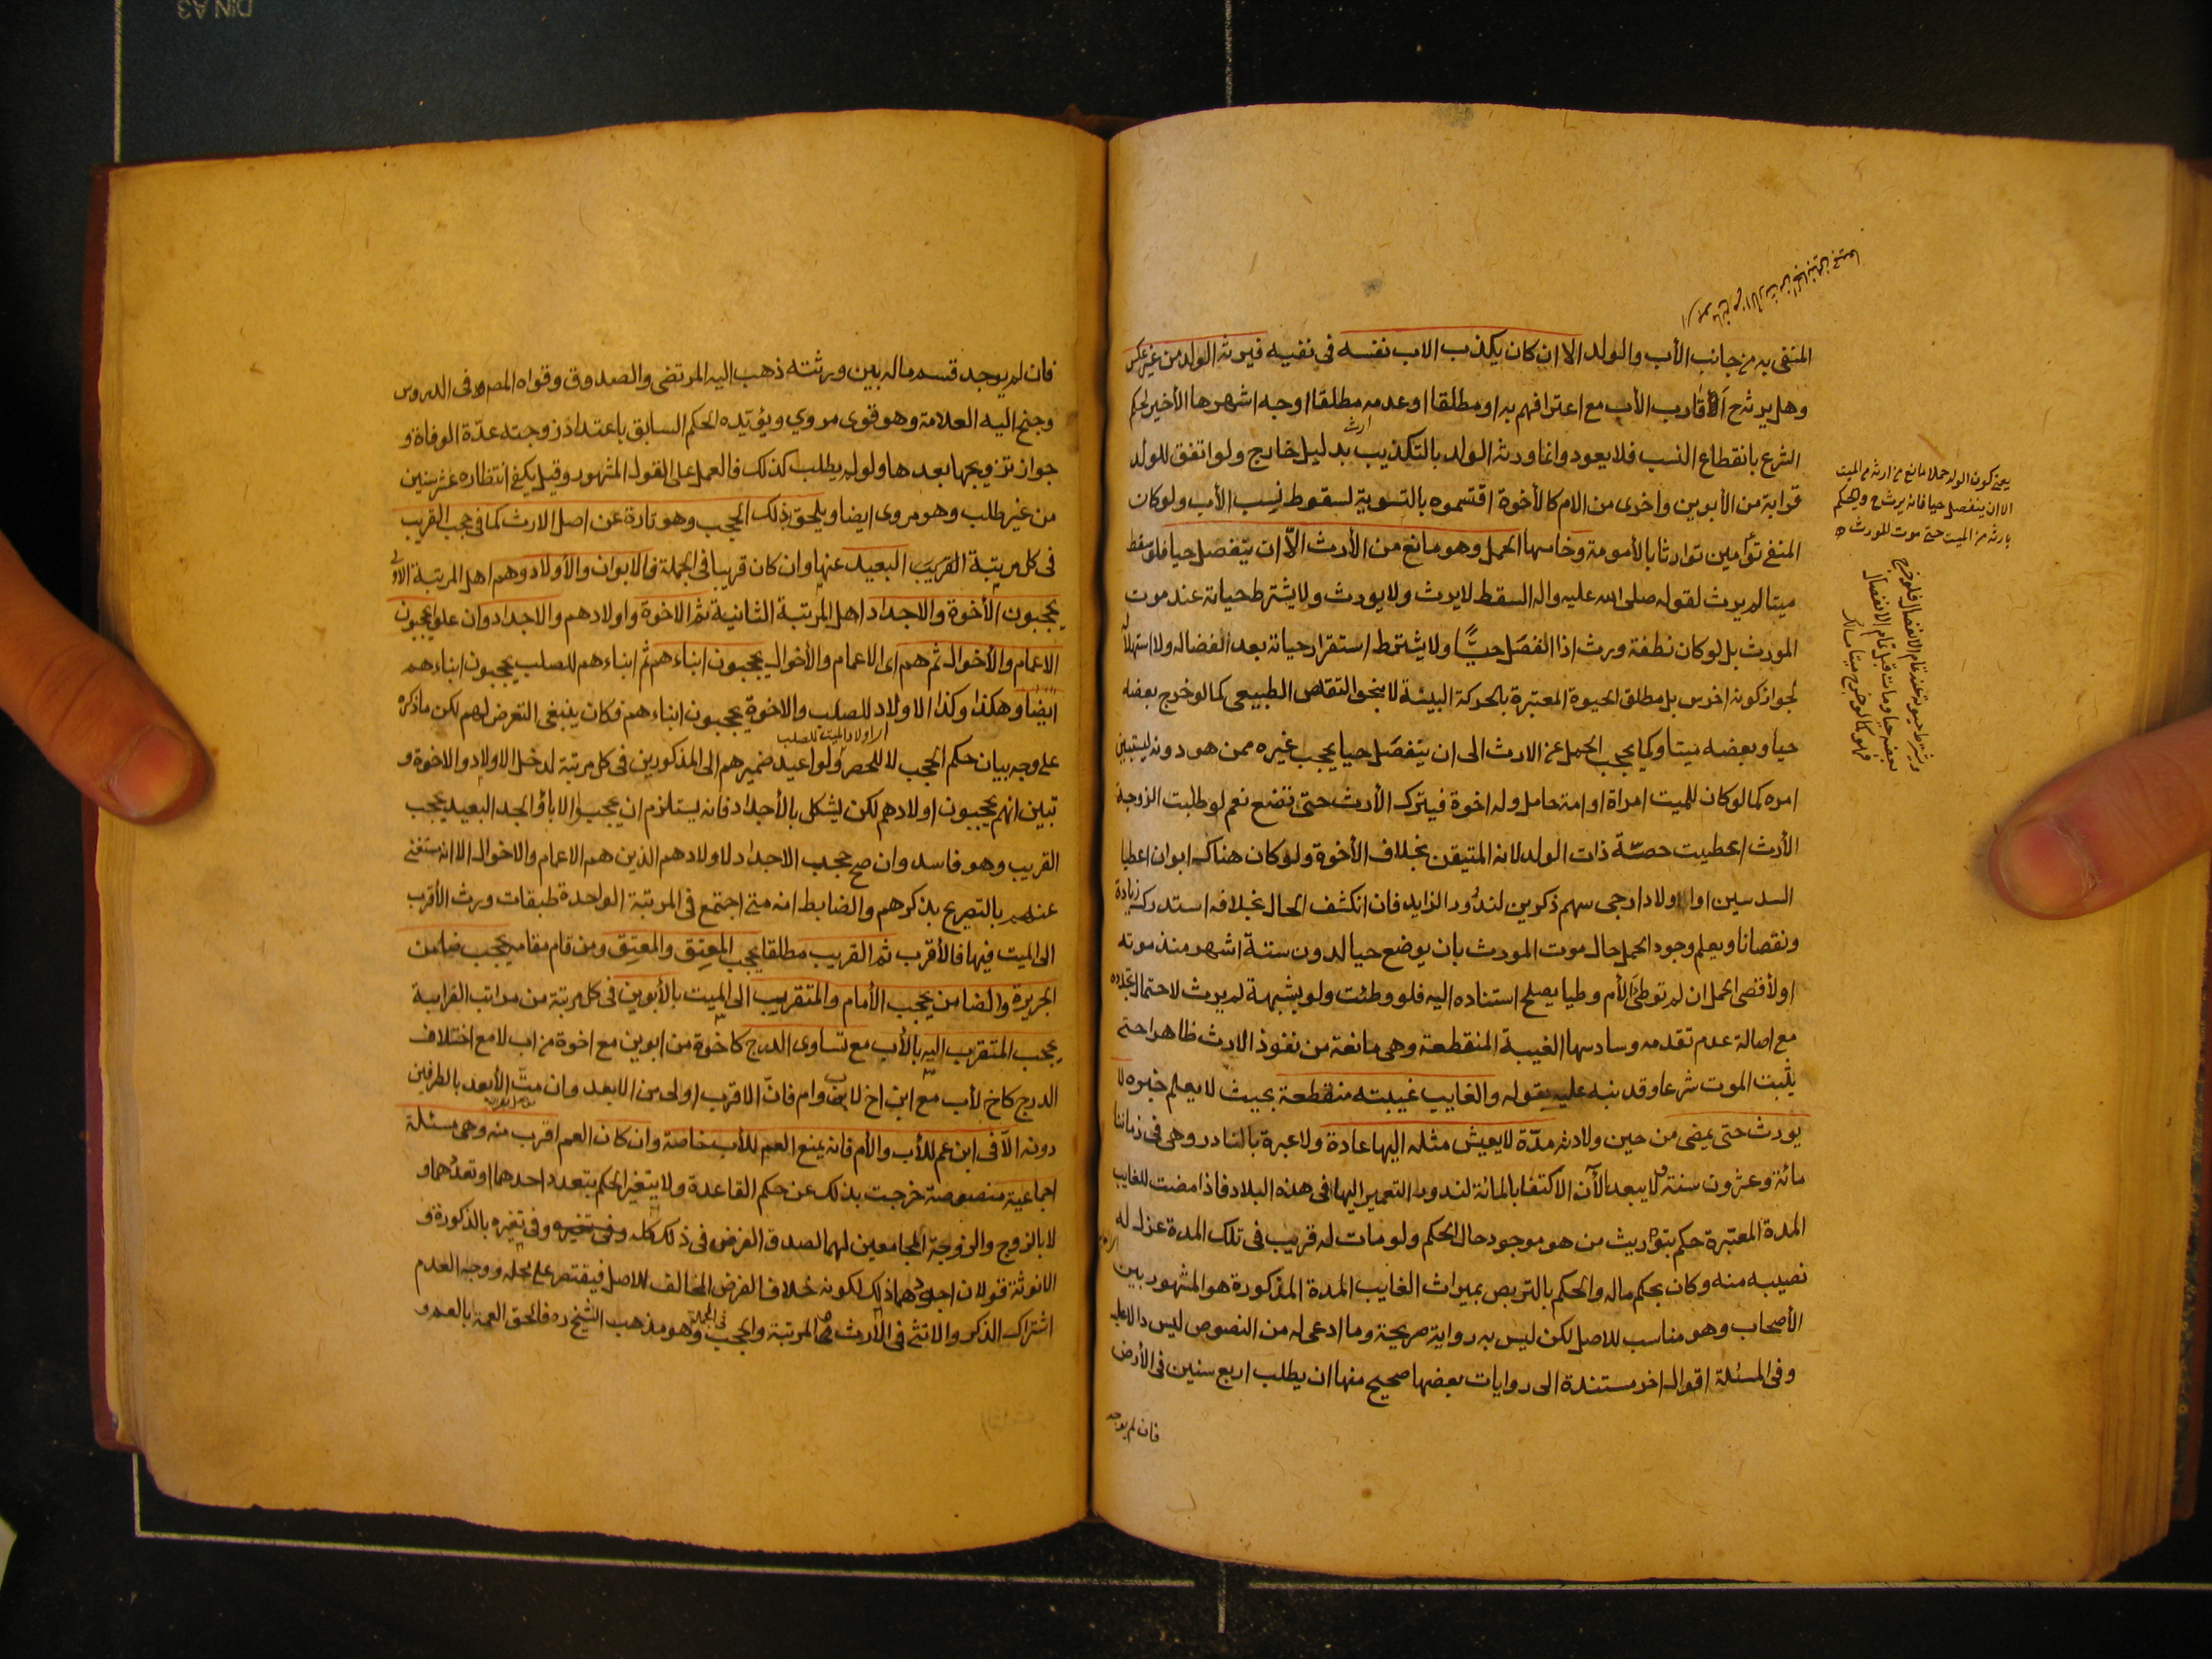 المنفى به من جانب الأب والولد الا ان كان يكذب الاب نفسه فى نفيه فيرثه الولد من غير عكس
وهل يرثه ح اقارب الأب مع اعترافهم به او مطلقا او عدمه مطلقا اوجه اشهرها الأخير لحكم
الشرع بانقطاع النسب فلا يعود وانما ورثه الولد بالتكذيب بدليل خارج ولو اتفق للولد
قرابة من الأبوين واخرى من الام كالأخوة اقتسموه بالتسوية لسقوط نسب الأب ولو كان
المنفى توأمين توارثا بالأمومة وخامسها الحمل وهو مانع من الأرث الّا ان ينفصل حيا فلو سقط
ميتا لم يرث لقوله صلى الله عليه واله السقط لا يرث ولا يورث ولا يشترط حياته عند موت
المورث بل لو كان نطفة ورث اذا انفصل حيًّا ولا يشترط استقرار حياته بعد انفصاله ولا استهلاله
لجواز كونه اخرس بل مطلق الحيوة المعتبرة بالحركة البيئة لا بنحو التقلص الطبيعى كما لو خرج بعضه
حيا وبعضه ميتا وكما يحجب الحمل عن الارث الى ان ينفصل حيا يحجب غيره ممن هو دونه ليستبين
امره كما لو كان للميت امراة او امة حامل وله اخوة فيترك الأرث حتى تضع نعم لو طلبت الزوجة
الأرث اعطيت حصّة ذات الولد لانه المتيقن بخلاف الأخوة ولو كان هناك ابوان اعطيا
السدسين او اولاد ارجى سهم ذكرين لندور الزايد فان انكشف الحال بخلافه استدرك زيادة
ونقصانا ويعلم وجود الحمل حال موت المورث بان يوضع حيا لدون ستة اشهر منذ موته
او لأقصى الحمل ان لم توطئ الأم وطيا يصلح استناده اليه فلو وطئت ولو بشبهة لم يرث لاحتمال تجدده
مع اصالة عدم تقدمه وسادسها الغيبة المنقطعة وهى مانعة من نفوذ الارث ظاهرا حتى
يثبت الموت شرعا وقد نبه عليه بقوله والغايب غيبته منقطعة بحيث لا يعلم خبره لا
يورث حتى يمضى من حين ولادته مدّة لا يعيش مثله اليها عادة ولا عبرة بالنادر وهى فى زماننا
مائة وعشرون سنة ولا يبعد الآن الاكتفا بالمائة لندور التعمير اليها فى هذه البلاد فاذا مضت للغايب
المدة المعتبرة حكم بتوريث من هو موجود حال الحكم ولو مات له قريب فى تلك المدة عزل له
نصيبه منه وكان بحكم ماله والحكم بالتربص بميراث الغايب المدة المذكورة هو المشهور بين
الأصحاب وهو مناسب للاصل لكن ليس به رواية صريحة وما ادعى له من النصوص ليس دالا عليه
وفى المسئلة اقوال اخر مستندة الى روايات بعضها صحيح منها ان يطلب اربع سنين فى الأرض
فان لم يوجد
يعنى كون الولد حملا مانع من ارثه من الميت
الا ان ينفصل حيا فانه يرث ح ولا يحكم
بارثه من الميت حتى موت المورث
فان لم يوجد قسم ماله بين ورثته ذهب اليه المرتضى والصدوق وقواه المصره فى الدروس
وجنح اليه العلامة وهو قوى مروي ويؤيّده الحكم السابق باعتداد زوجته عدّة الوفاة و
جواز تزويجها بعدها ولو لم يطلب كذلك فالعمل على القول المشهور وقيل يكفى انتظاره عشر سنين
من غير طلب وهو مروى ايضا ويلحق بذلك الحجب وهو تارة عن اصل الارث كما فى حجب القريب
فى كل مرتبة القريب البعيد عنها وان كان قريبا فى الجملة فالابوان والأولاد وهم اهل المرتبة الاولى
يحجبون الأخوة والاجداد اهل المرتبة الثانية ثم الاخوة واولادهم والاجداد وان علو يحجبون
الاعمام والأخوال ثم هم اى الاعمام والأخوال يحجبون ابناءهم ثم ابناءهم للصلب يحجبون ابناءهم
ايضا وهكذا وكذا الاولاد للصلب والاخوة يحجبون ابناءهم فكان ينبغى التعرض لهم لكن ما ذكره
اى اولاد الميت للصلب
على وجه بيان حكم الحجب لا للحصر ولو اعيد ضميرهم الى المذكورين فى كل مرتبة لدخل الاولاد والاخوة و
تبين انهم يحجبون اولادهم لكن يشكل بالأجداد فانه يستلزم ان يحجبوا الابا والجد البعيد يحجب
القريب وهو فاسد وان صح حجب الاجداد لاولادهم الذين هم الاعمام والاخوال الا انه ستغنى
عنهم بالتصريح بذكرهم والضابط انه متى اجتمع فى المرتبة الواحدة طبقات ورث الأقرب
الى الميت فيها فالأقرب ثم القريب مطلقا يحجب المعتِق والمعتِق ومن قام مقامه يحجب ضامن
الجريرة والضامن يحجب الأمام والمتقرب الى الميت بالأبوين فى كل مرتبة من مراتب القرابة
يحجب المتقرب اليه بالأب مع تساوى الدرج كاخوة من ابوين مع اخوة من اب لا مع اختلاف
الدرج كاخ لأب مع ابن اخ لاب وام فانّ الاقرب اولى من الابعد وان متّ الأبعد بالطرفين
دونه الّا فى ابن عم للأب والأم فانه يمنع العم للأب خاصة وان كان العم اقرب منه وهى مسئلة
اجماعية منصوصة خرجت بذلك عن حكم القاعدة ولا يتغير الحكم بتعدد احدهما او تعدّدهما و
لا بالزوج والزوجة المجامعين لهما لصدق الفرض فى ذلك كله وفى تغيره بالذكورة و
الانوثة قولان اجودهما ذلك لكونه خلاف الفرض المخالف للاصل فيقتصر على محله ووجه العدم
اشتراك الذكر والانثى فى الارث والمرتبة والحجب فى الجملة وهو مذهب الشيخ ره فالحق العمة بالعم و